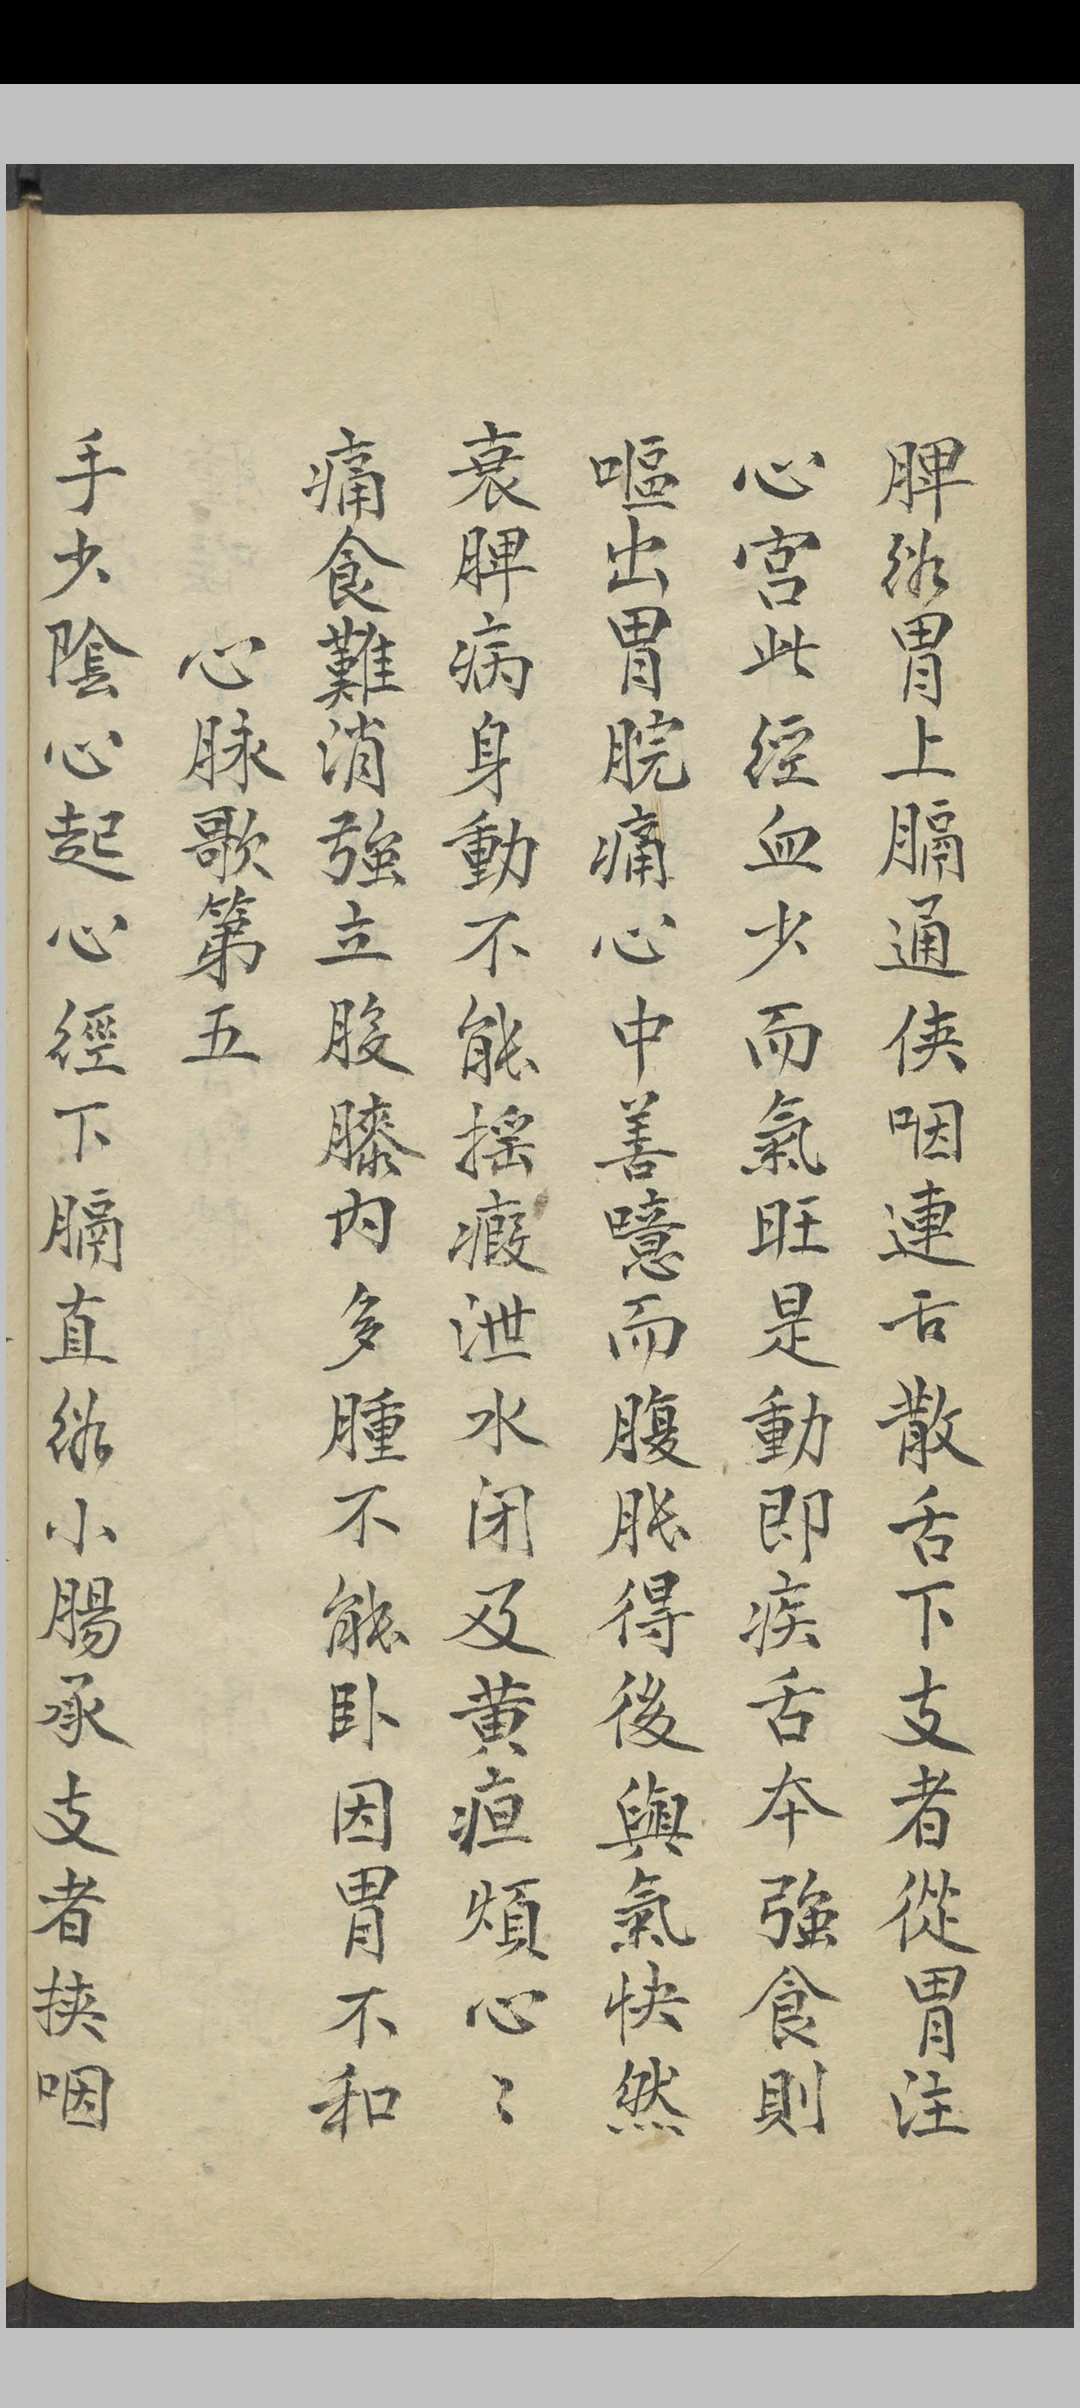 脾絡胃上膈通侠咽連舌散舌下支者從胃注
心宮此經血少而氣旺是動即疾舌本強食則
嘔出胃脘痛心中善噫而腹脹得後與氣快然
衰脾病身動不能摇瘕泄水闭及黄疸煩心〻
痛食難消強立股膝内多腫不能卧因胃不和
心脉歌第五
手少陰心起心經下膈直絡小腸承支者挟咽